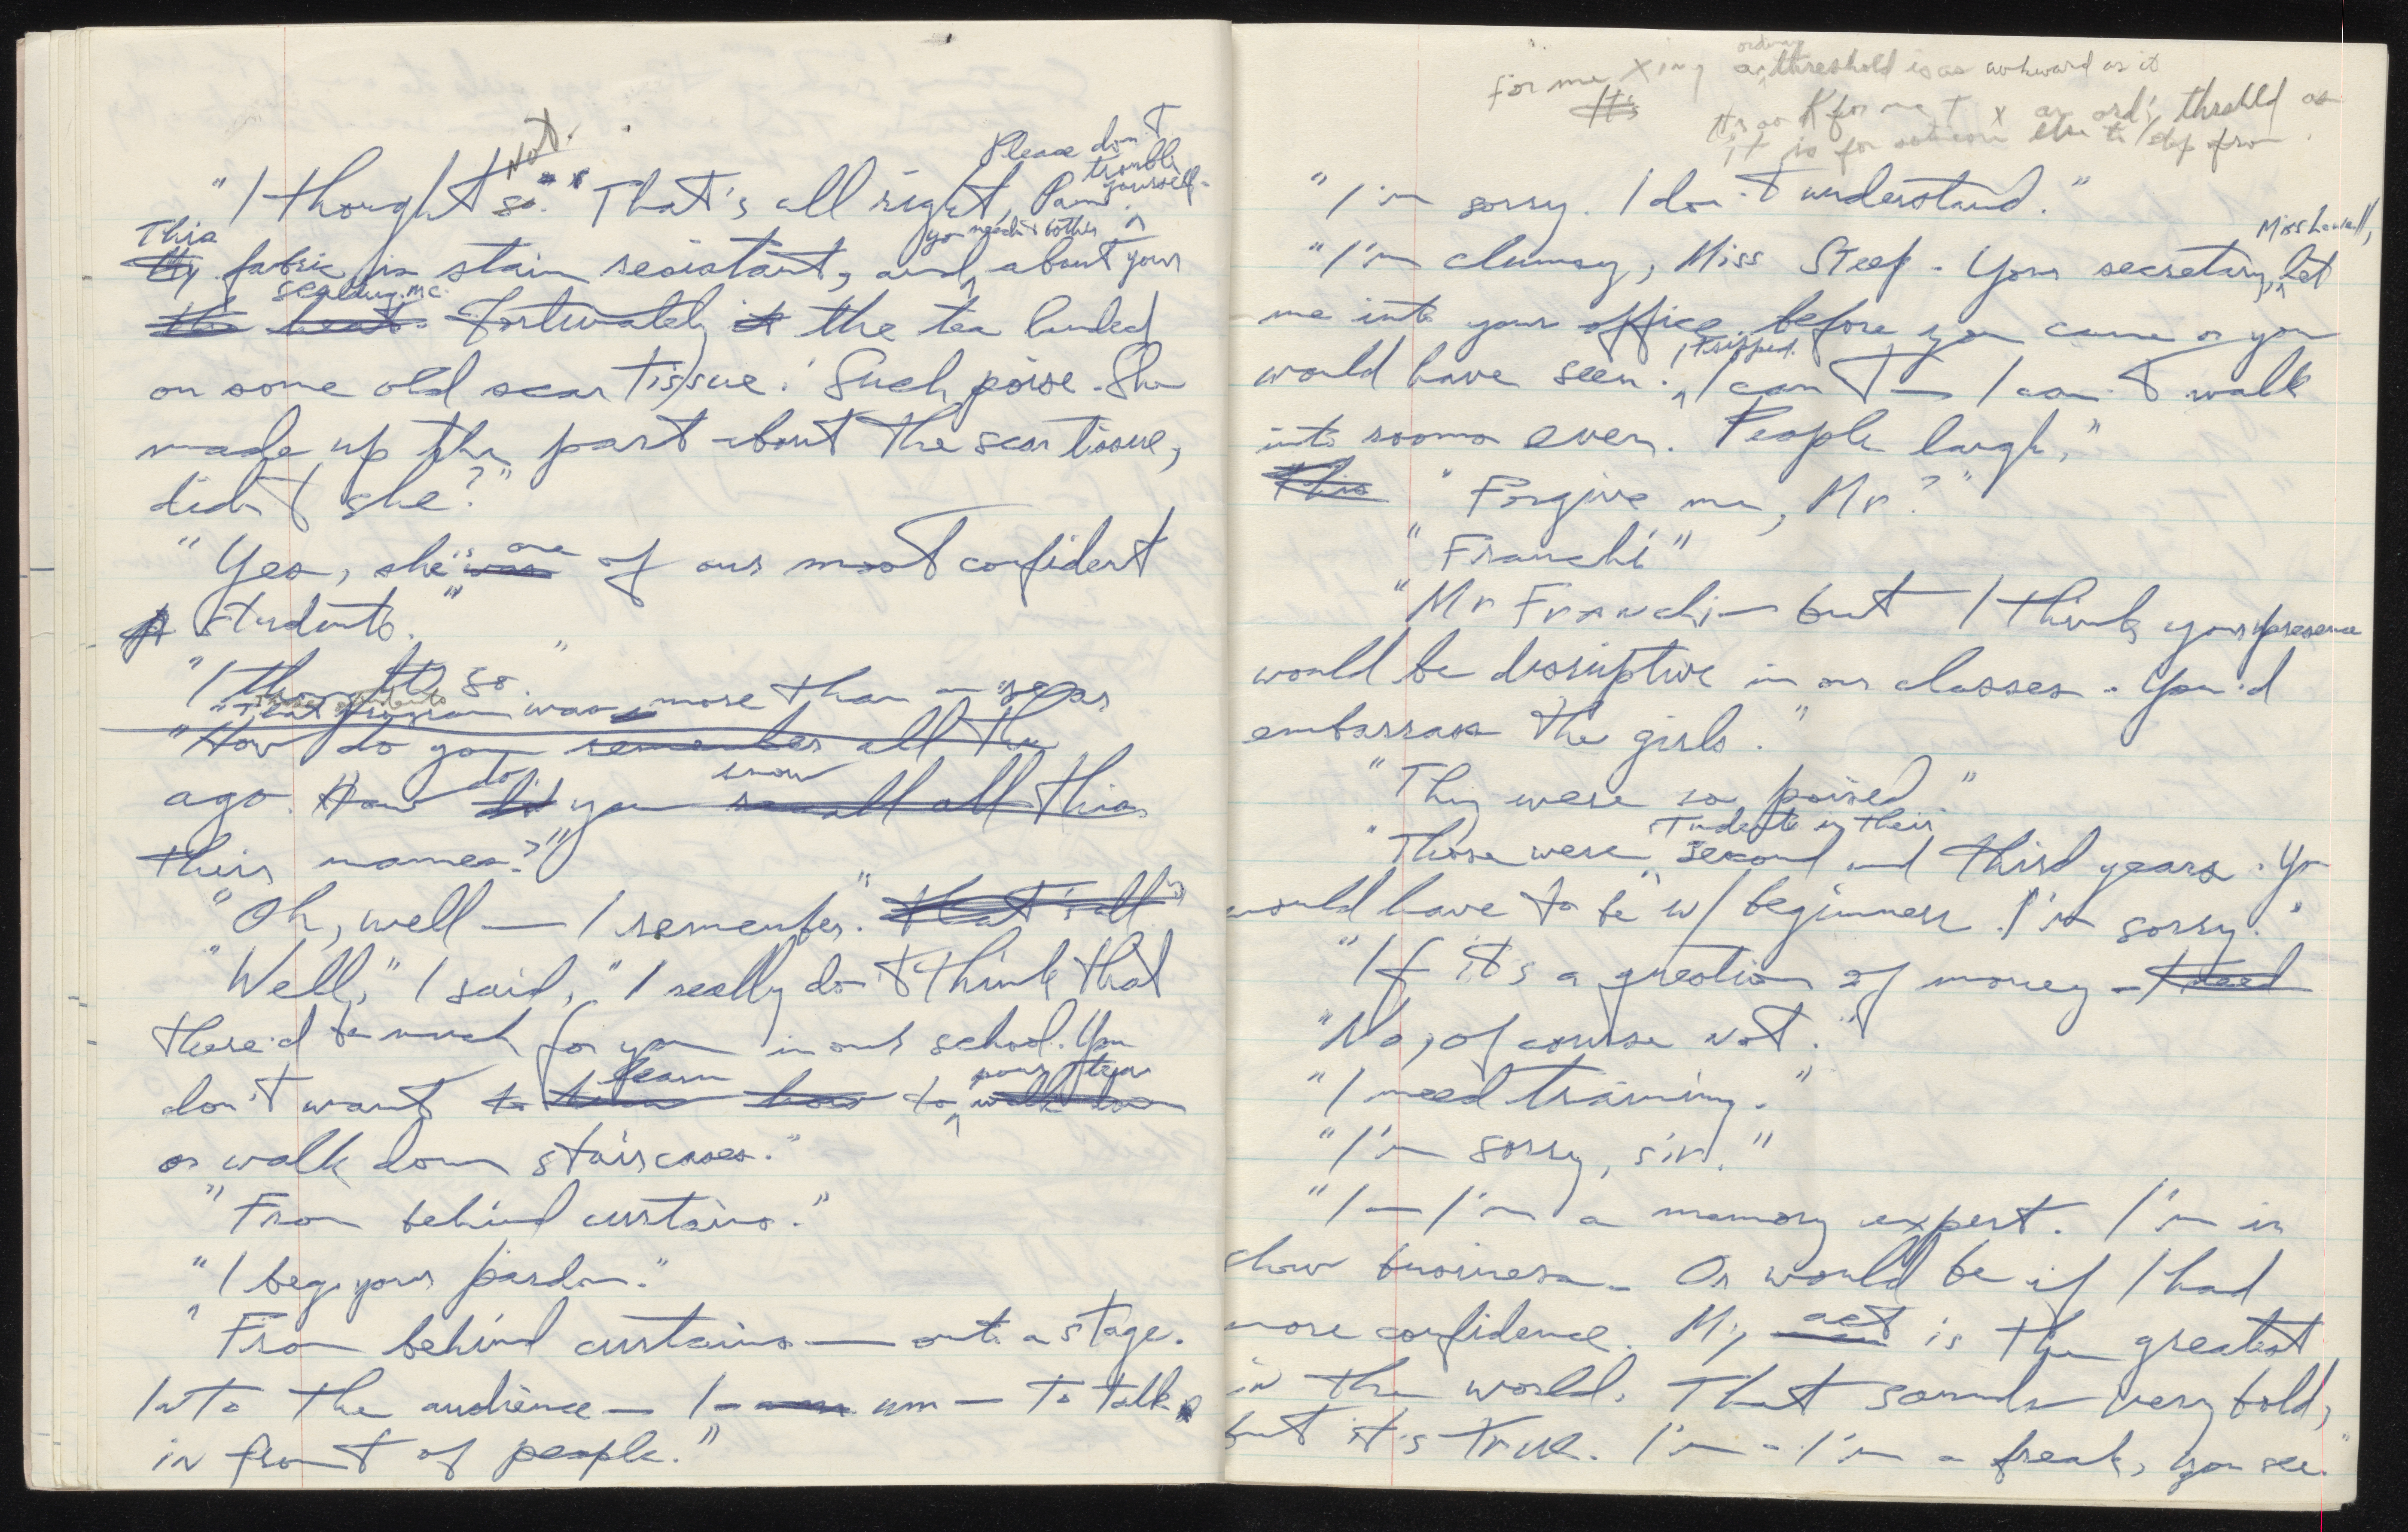 not.
Please don't
trouble
yourself.
"I thought so." "'That's all right, Pam.
you needn't bother
This
My fabric is stain resistant, and about your
scalding me.
the heat. Fortunately it the tea landed
on some old scar tissue.' Such poise. She
made up the part about the scar tissue,
didn't she?"
"Yes, she's was one of our most confident
students."
"I thought so."
"That program was more than a year
"How do you remember all the
ago. How did do you recall all this know
their names?"
"Oh, well — I remember." that's all
"Well," I said, "I really don't think that
there'd be much for you in our school. You
learn pour tea
don't want to how to walk down
or walk down staircases."
"From behind curtains."
"I beg your pardon."
"From behind curtains — onto a stage.
Into the audience — I — um — to talk
in front of people."
ordinary
For me Xing a threshold is as awkward as it
It's
It's as K for me t X an ord'y threshld as
it is for someone else to step from
"I'm sorry. I don't understand."
Miss Lowell,
"I'm clumsy, Miss Steep. Your secretary, let
me into your office before you came or you
I tripped.
would have seen. I can't — I can't walk
into rooms even. People laugh."
This "Forgive me, Mr?"
"Franchi"
"Mr Franchi — but I think your presence
would be disruptive in our classes. You'd
embarrass the girls."
"They were so poised."
students in their
"Those were second and third years. You
would have to be w/ beginners. I'm sorry."
"If it's a question of money — I need
"No, of course not."
"I need training."
"I'm sorry, sir."
"I — I'm a memory expert. I'm in
show business. Or would be if I had
more confidence. My act is the greatest
in the world. That sounds very bold,
but it's true. I'm — I'm a freak, you see."